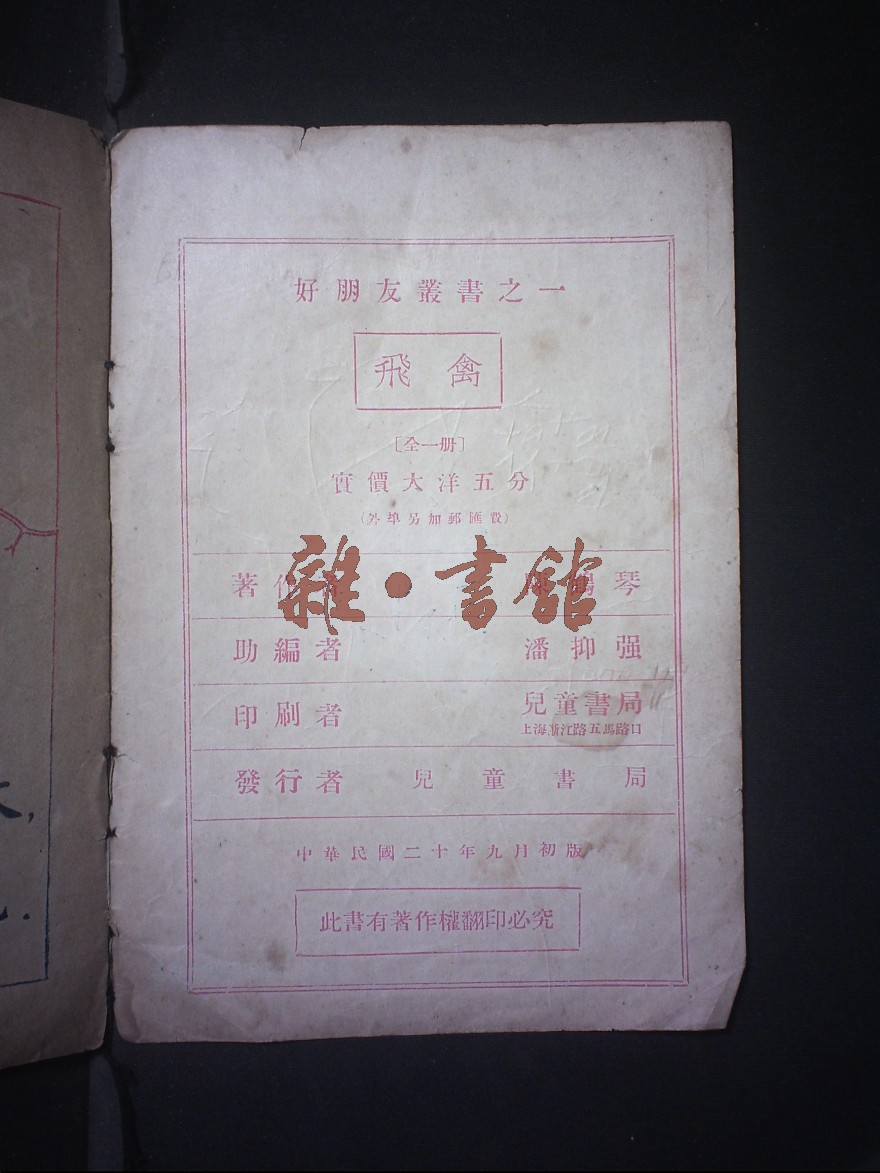 好朋友叢書之一
飛禽
〔全一册〕
實價大洋五分
（外埠另加郵匯費）
著作者 陳鶴琴
雜·書館
助編者 潘抑强
印刷者 兒童書局
上海浙江路五馬路口
發行者 兒童書局
中華民國二十年九月初版
此書有著作權翻印必究